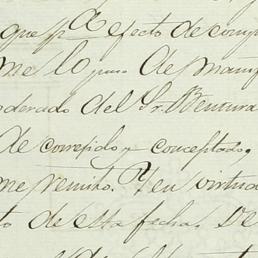 que pa. efecto de comp
me lo puso de manif
oderado del Sr. Ventura
de correjido y conceptado,
me remito. Y en virtud
to de esta fecha. De